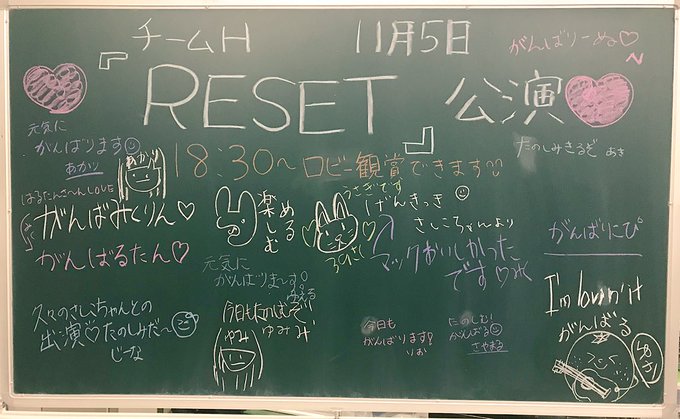 チームH 11月5日
『RESET』公演
がんばりーぬ♡
元気に
がんばります
あかり
18:30〜ロビー観賞できます!!
たのしみきるぞ あき
あかり
はるたんさ〜んLOVE
がんばみくりん♡
がんばるたん♡
楽しむ
める
うさぎです
げんきっき
さしこちゃんより
マックおいしかった
です♡
がんばりこぴ
元気に
がんばりま〜す!
久々のさしこちゃんとの
出演♡たのしみだ〜
じーな
今日もたのしむぞ
ゆみ
今日も
がんばります!
りお
たのしむ!
がんばる
さやまる
I'm lovin' it
がんばる